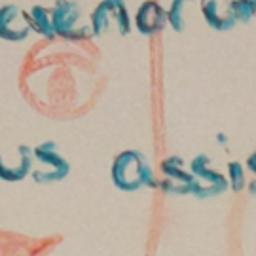 evenor
us assis